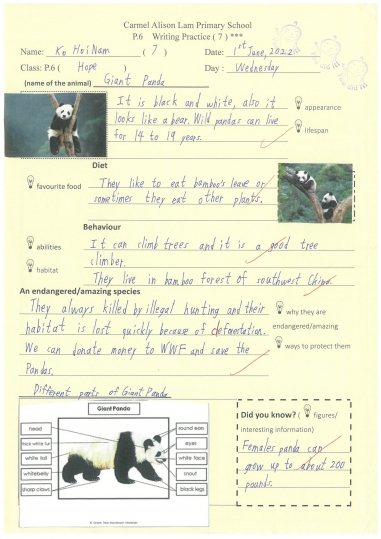 Carmel Alison Lam Primary School
P.6 Writing Practice ( 7 ) ***
Name: Ko Hoi Nam ( 7 ) Date: 1st June, 2022
Class: P.6 ( Hope ) Day : Wednesday
(name of the animal) Giant Panda
It is black and white, also it
looks like a bear. Wild pandas can live
for 14 to 19 years.
appearance
lifespan
Diet
favourite food
They like to eat bamboo's leave or
sometimes they eat other plants.
Behaviour
abilities
habitat
It can climb trees and it is a good tree
climber.
They live in bamboo forest of southwest China.
An endangered/amazing species
They always killed by illegal hunting and their
habitat is lost quickly because of deforestation.
We can donate money to WWF and save the
Pandas.
why they are
endangered/amazing
ways to protect them
Different parts of Giant Panda
Giant Panda
head
thick white fur
white tail
white belly
sharp claws
round ears
eyes
white face
snout
black legs
Did you know? ( figures/
interesting information)
Females panda can
grow up to about 200
pounds.